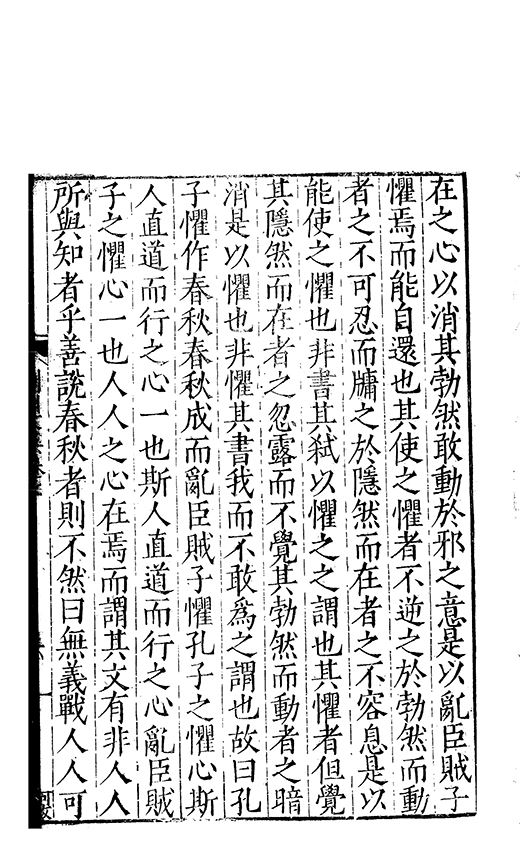 在之心以消其勃然敢動於邪之意是以亂臣賊子
懼焉而能自還也其使之懼者不逆之於勃然而動
者之不可忍而牗之於隱然而在者之不容息是以
能使之懼也非書其弑以懼之之謂也其懼者但覺
其隱然而在者之忽露而不覺其勃然而動者之暗
消是以懼也非懼其書我而不敢為之謂也故曰孔
子懼作春秋春秋成而亂臣賊子懼孔子之懼心斯
人直道而行之心一也斯人直道而行之心亂臣賊
子之懼心一也人人之心在焉而謂其文有非人人
所與知者乎善說春秋者則不然曰無義戰人人可